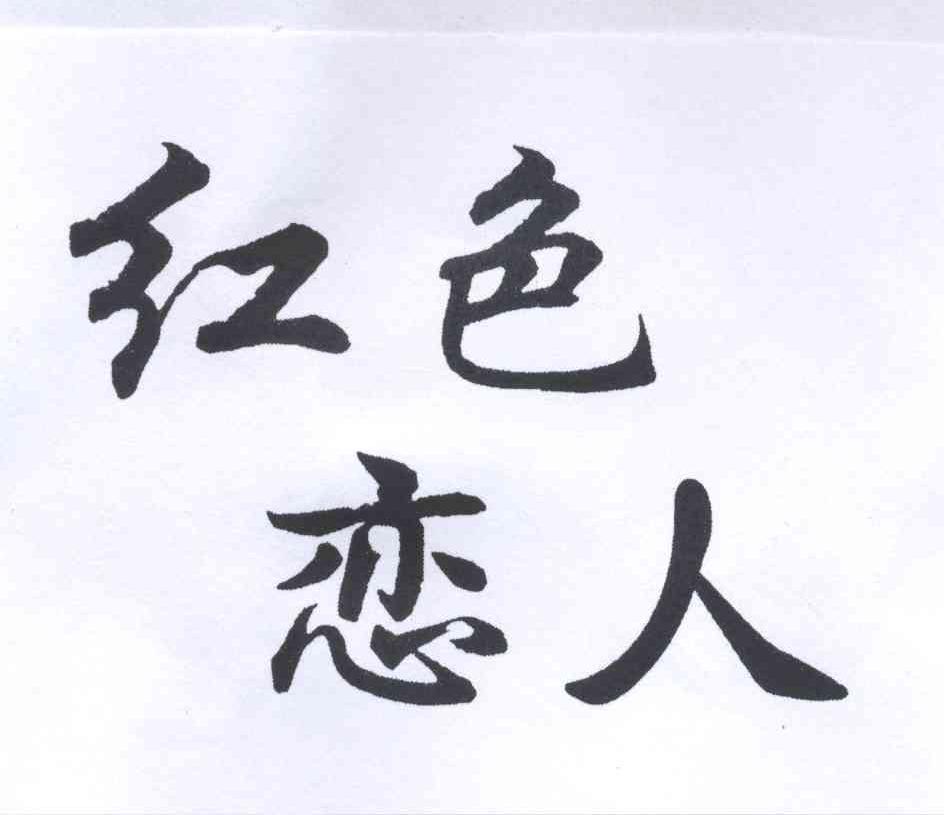 红色
恋人